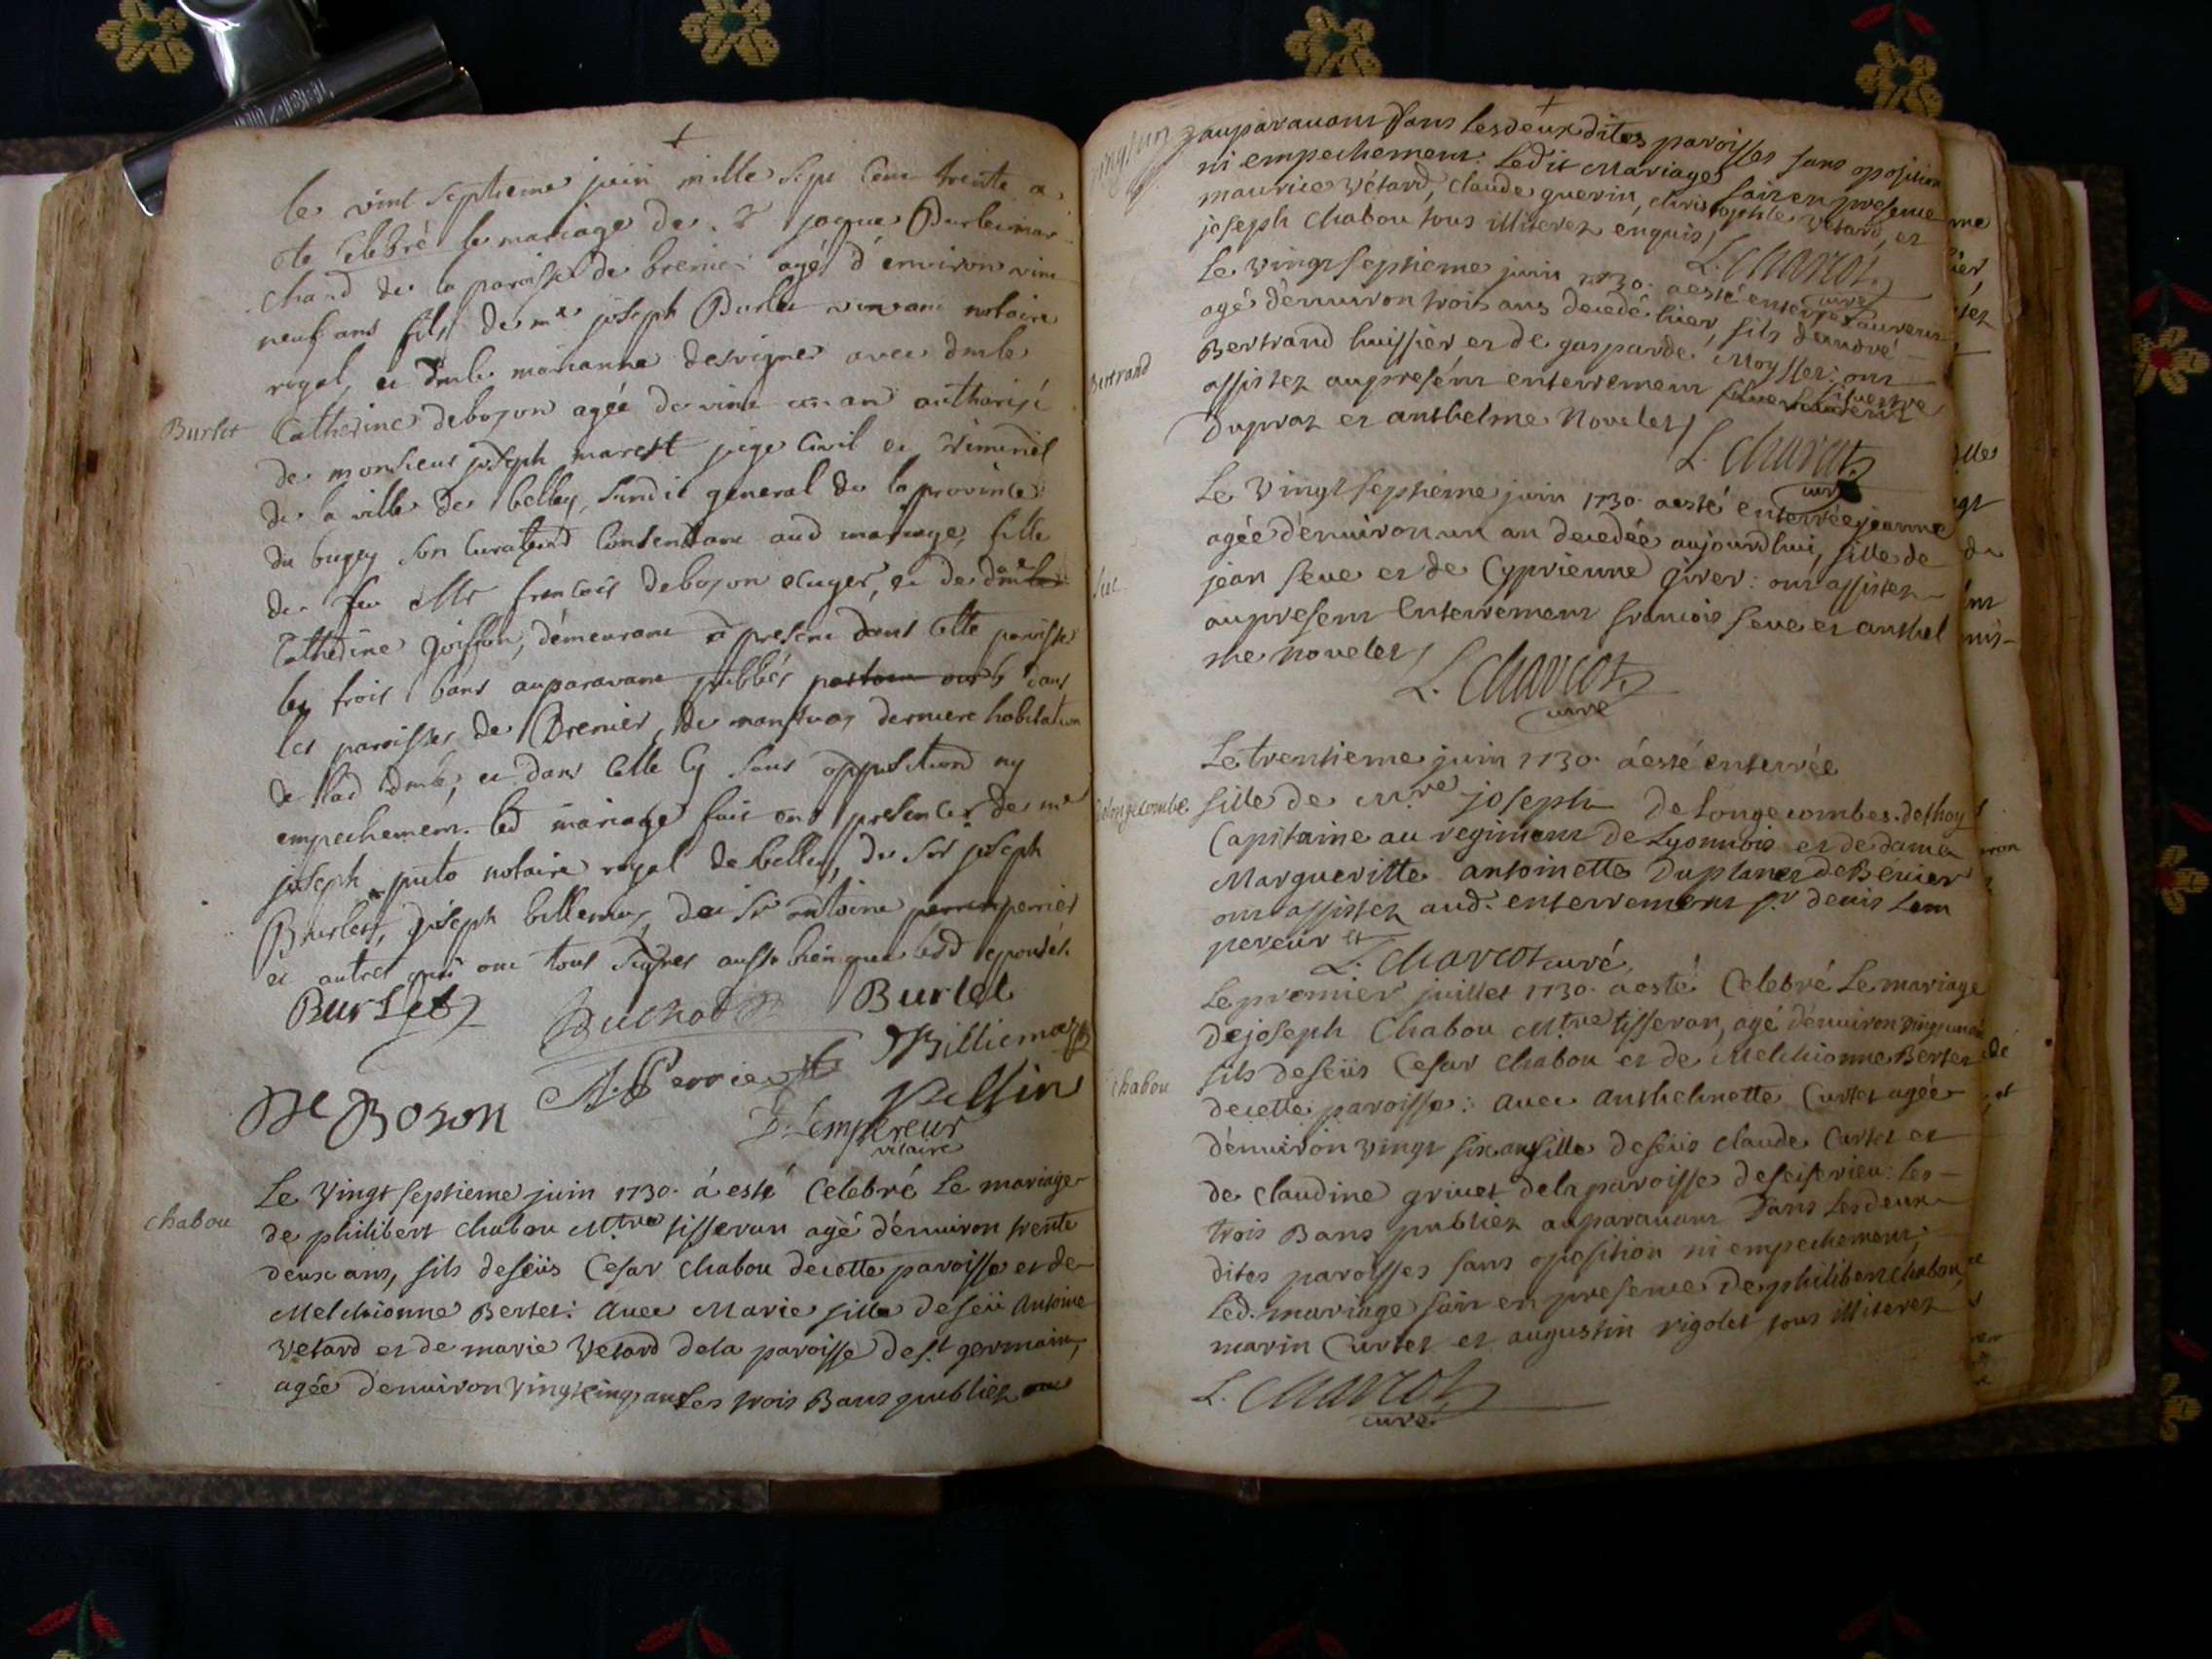 le vint septieme juin mille sept cent trente a
ete celebré le mariage de Sr jaque Burlet mar
chand de la paroisse de brenier agés d'environ vint
neuf ans fils de me joseph Burlet vivant notaire
royal, et dmle marianne desvignes avec dmle
Burlet
Catherine debozon agéé de vint un an authorisé
de monsieur joseph marest juge civil et criminel
de la ville de belley, sindic general de la province
du bugey son curateur consentant aud mariage, fille
de feu françois debozon ecuyer, et de
Catherine goiffon, demeurant a present dans cette paroisse
les trois bans auparavant publiés dans
les paroisses de Brenier, de derniere habitation
de lad dmle, et dans celle cy sans opposition ny
empechement. led mariage fait en presence de me
joseph notaire royal de belley, du Sr joseph
Burlet, joseph billemaz, du Sr antoine perrier
et autres qui ont tous signes aussi bien que lesd epousés.
Burlet Buchod Burlet
A. Perrier Billiemaz
De Boson Pelsin
D. Lempereur
vicaire
chabou
Le vingt septieme juin 1730. á esté Celebré Le mariage
de philibert chabou M.tre tisseran agé d'enuiron trente
deux ans, fils deféüs Cesar chabou decette paroisse et de
Melchionne Bertet: auec Marie fille deféü Antoine
Vetard et de marie Vetard dela paroisse de St germain,
agée d'enuiron vingt cinq ans Les trois Bans publiez
auparauant dans les deux dites paroisses sans oposition
ni empechement. Ledit Mariage fait en presence
maurice Vétard, claude guerin, christophle Vetard, et
joseph chabou tous illiterez enquis
L. Charcot
curé
Le vingt septieme juin 1730. a esté enterré Laurens
agé d'enuiron trois ans decedé hier, fils d'andré
Bertrand
Bertrand huissier et de gasparde Moysset: ont
assistez au présent enterrement siluestre
Dupraz et anthelme Nouelet
L. Charcot
curé
Le Vingt septieme juin 1730. a esté enterrée jeanne
agéé d'enuiron un an decedéé aujourdhui, fille de
jean seue et de Cyprienne girer: ont assistez
au present Enterrement francois seue et anthel
me nouelet
L. Charcot
curé
Le trentieme juin 1730. á esté enterrée
delongecombe
fille de M.re joseph de Longecombes. dethoy
Capitaine au regiment de Lyonnois et de dame
Margueritte antoinette Duplanet de Bénier
ont assistez aud. enterrement Sr denis Lem
pereur et
L. Charcot curé
Le premier juillet 1730. a esté Celebré Le mariage
de joseph Chabou M.tre tisseran, agé d'enuiron
chabou
fils deféüs Cesar chabou et de Melchionne Bertet
decette paroisse: auec anthelmette Curtet agée
d'enuiron vingt six ans fille deféüs claude Curtet et
de claudine griuet dela paroisse deseiserieu: Les
trois Bans publiez auparauant dans Les deux
dites paroisses sans oposition ni empechement,
Led. mariage fait en presence de philibert chabou,
marin Curtet et augustin rigolet tous illiterez
L. Charcot
curé